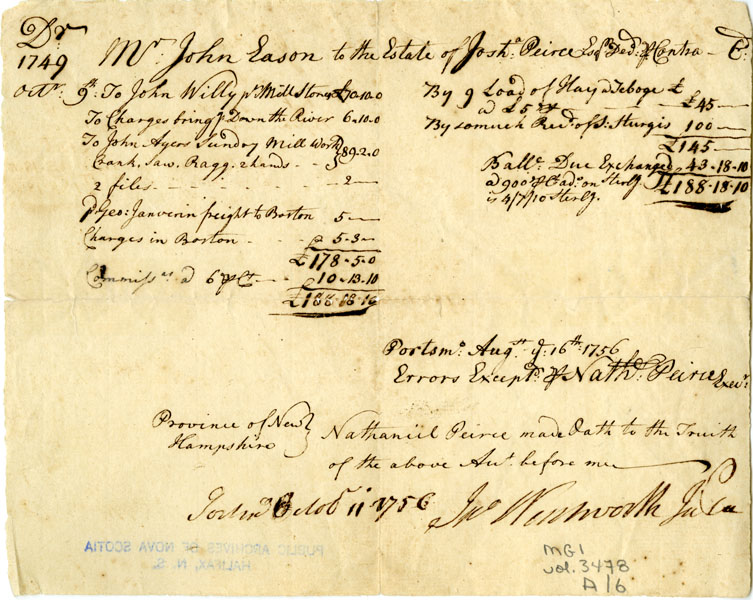 Dr
1749 Mr. John Eason to the Estate of Josha. Peirce Esqr. Decd. pr Contra — Cr.
Octr. 9th. To John Willy pr Mill Stones £70-10-0
To Charges bring g. Down the River 6-10-0
To John Ayers Sunday Mill Work
Crank, Saw. Ragg. 2 hands - - } 89-2-0
2 files - - - - - 2 —
pd Geo: Janverin freight to Boston 5 —
Charges in Boston - - - 5-3 —
£178-5-0
Commissns. a 6 pr Ct. — 10-13-10
£188-18-10
By 9 Load of Hay a Teboge £
a £5 pr £45 —
By so much Recd. of S. Sturgis 100 —
£145 —
Ballc. Due Exchanged 43-18-10
a 900 pr Ct. ad. on Sterlg. £188-18-10
is 4/7/10 Sterlg.
Portsmo. Augst. ye. 16th. 1756
Errors Exceptd. pr Nathl. Peirce Execr.
Province of New
Hampshire } Nathaniel Peirce made Oath to the Truth
of the above Acct. before me
Portsmo. Octobr 11 1756 Jno Wentworth Ju Pa
PUBLIC ARCHIVES OF NOVA SCOTIA
HALIFAX, N. S.
MG1
vol. 3478
A/6